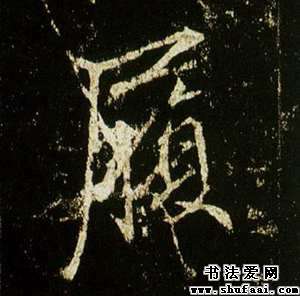 願
书法爱网
www.shufaai.com